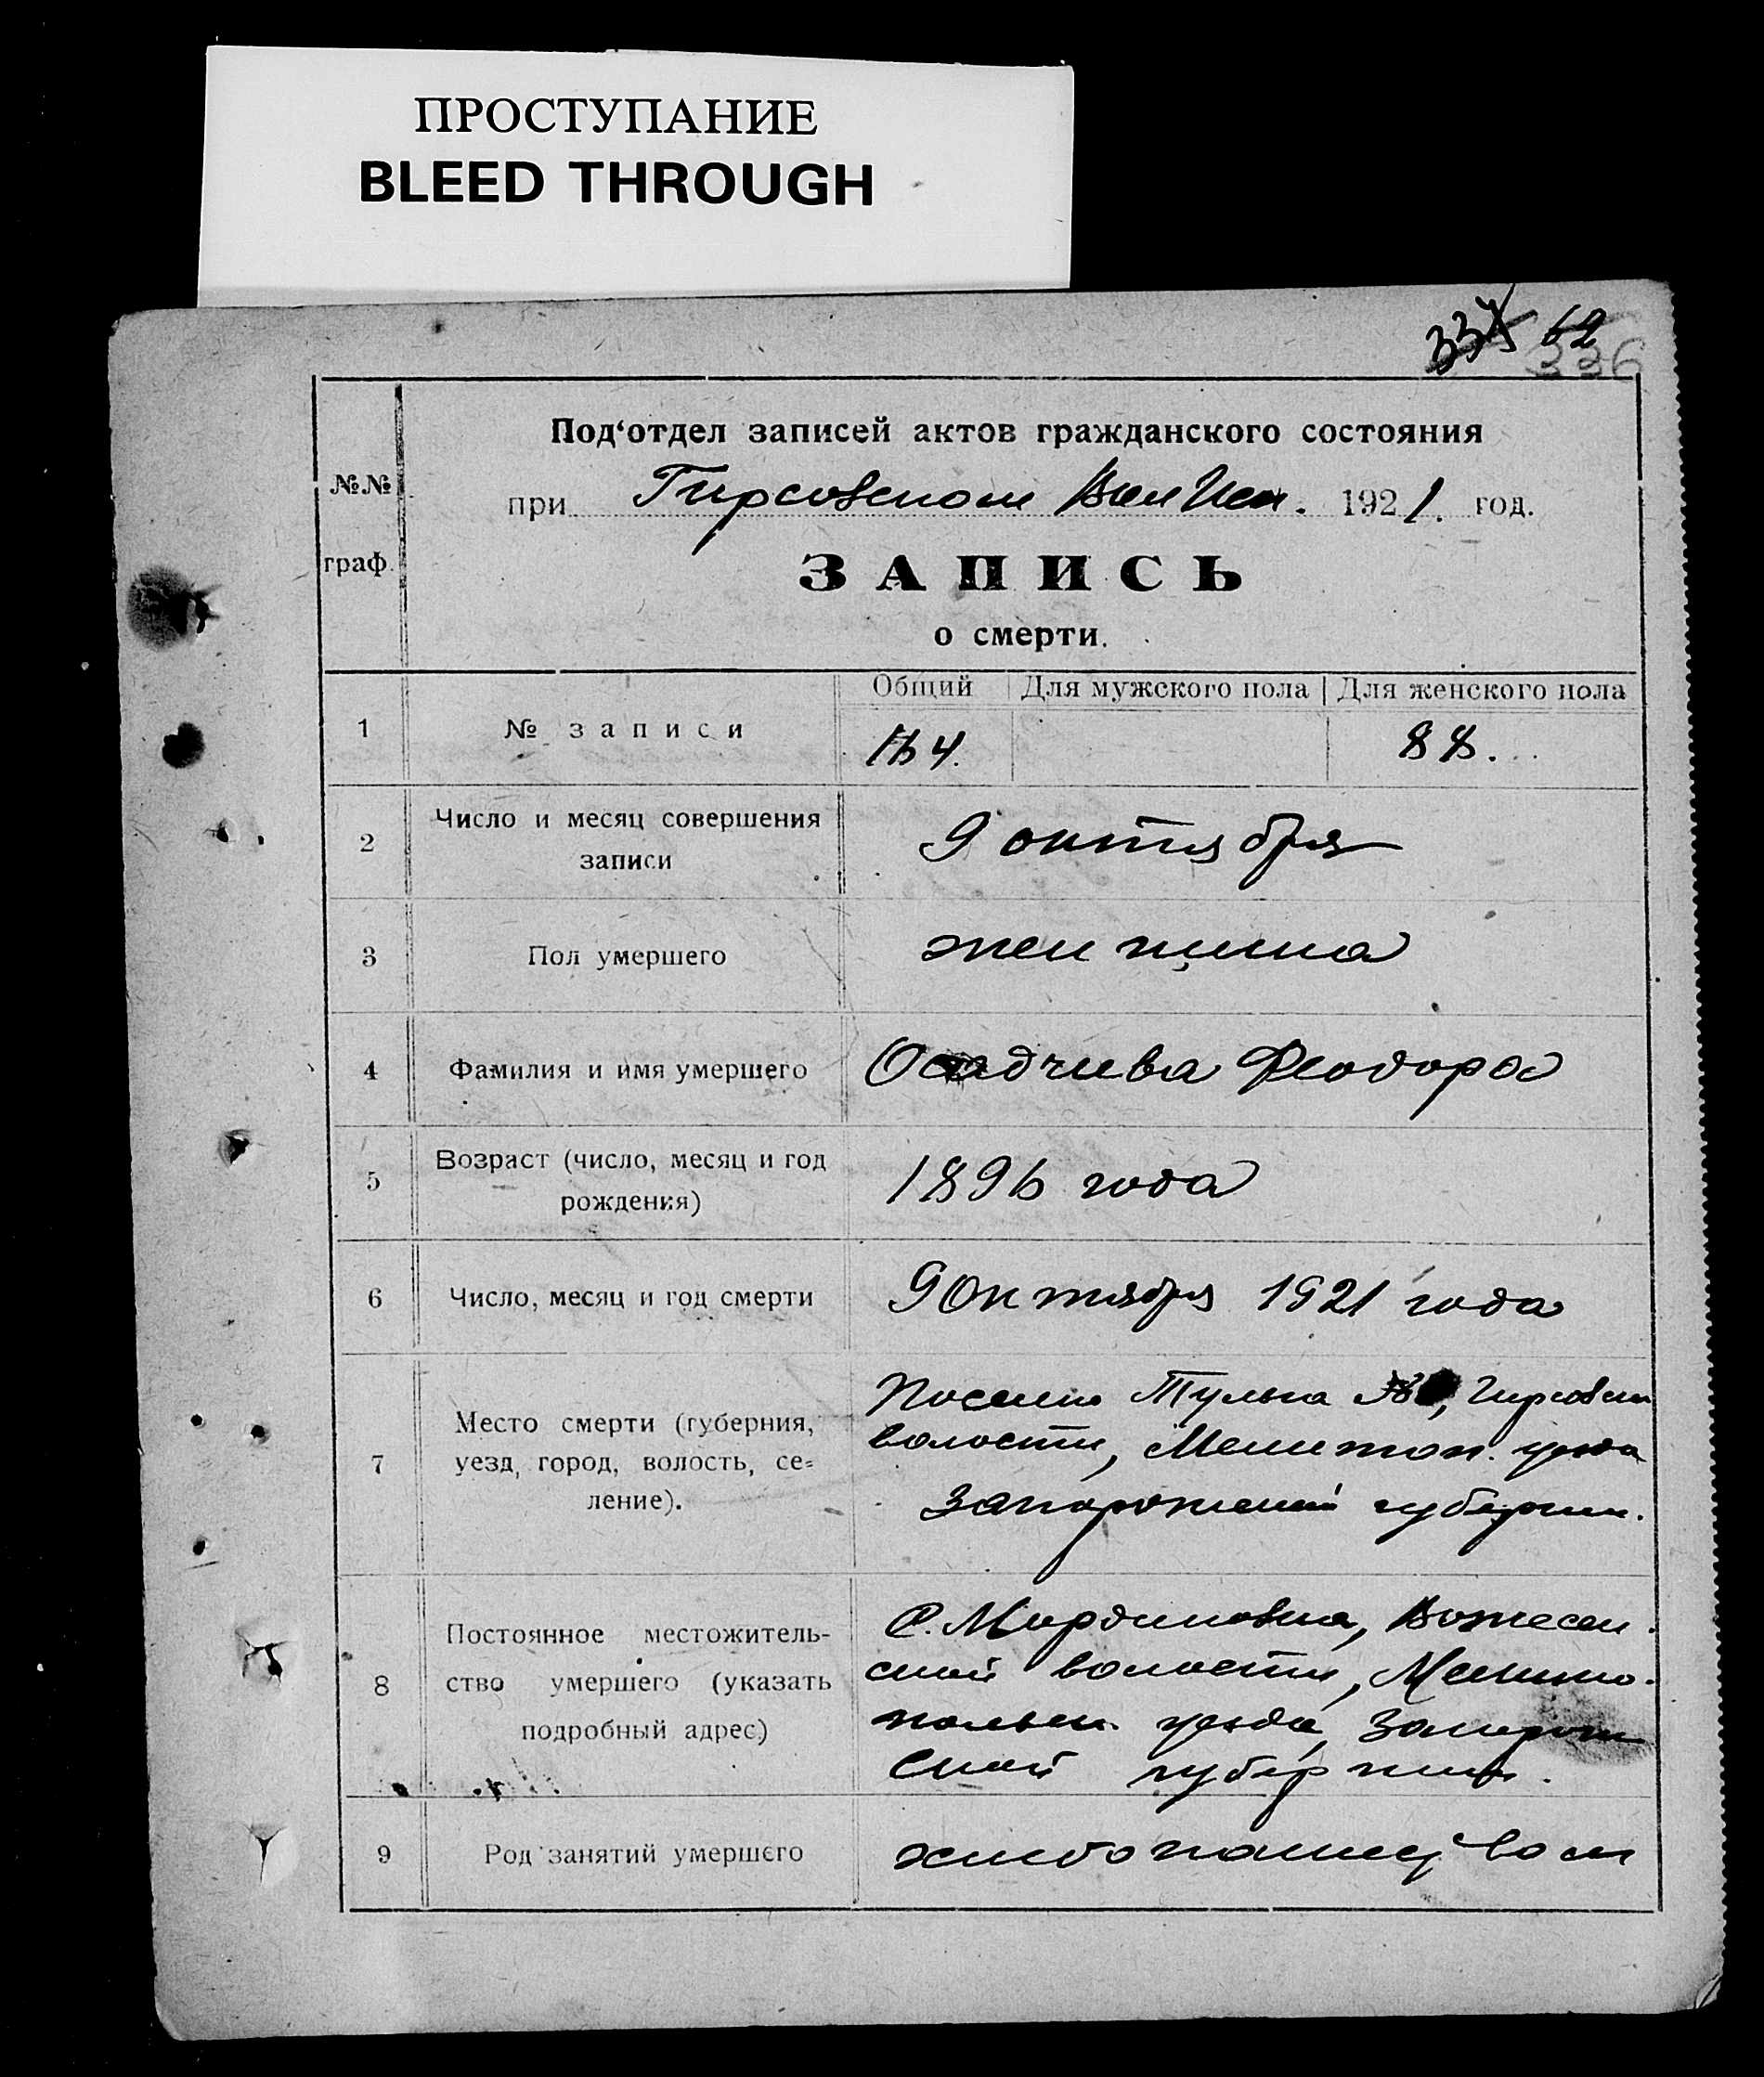 ПРОСТУПАНИЕ
BLEED THROUGH
62
336
№№
граф.
Под‘отдел записей актов гражданского состояния
при Гирсовском Вол Исп. 1921. год.
ЗАПИСЬ
о смерти.
Общий Для мужского пола Для женского пола
1 № записи 164. 88.
2 Число и месяц совершения
записи
9 октября
3 Пол умершего женщина
4 Фамилия и имя умершего Осадчева Феодора
5 Возраст (число, месяц и год
рождения)
1896 года
6 Число, месяц и год смерти 9 Октября 1921 года
7 Место смерти (губерния,
уезд, город, волость, се=
ление).
Тулька Гирсовск
волости, Мелитоп. уезда
Запорожской губернии.
8 Постоянное местожитель-
ство умершего (указать
подробный адрес)
С. Мордвиновка, Вознесен
ской волости, Мелито-
польск. уезда, Запорож
ской губернии.
9 Род занятий умершего хлебопашеством